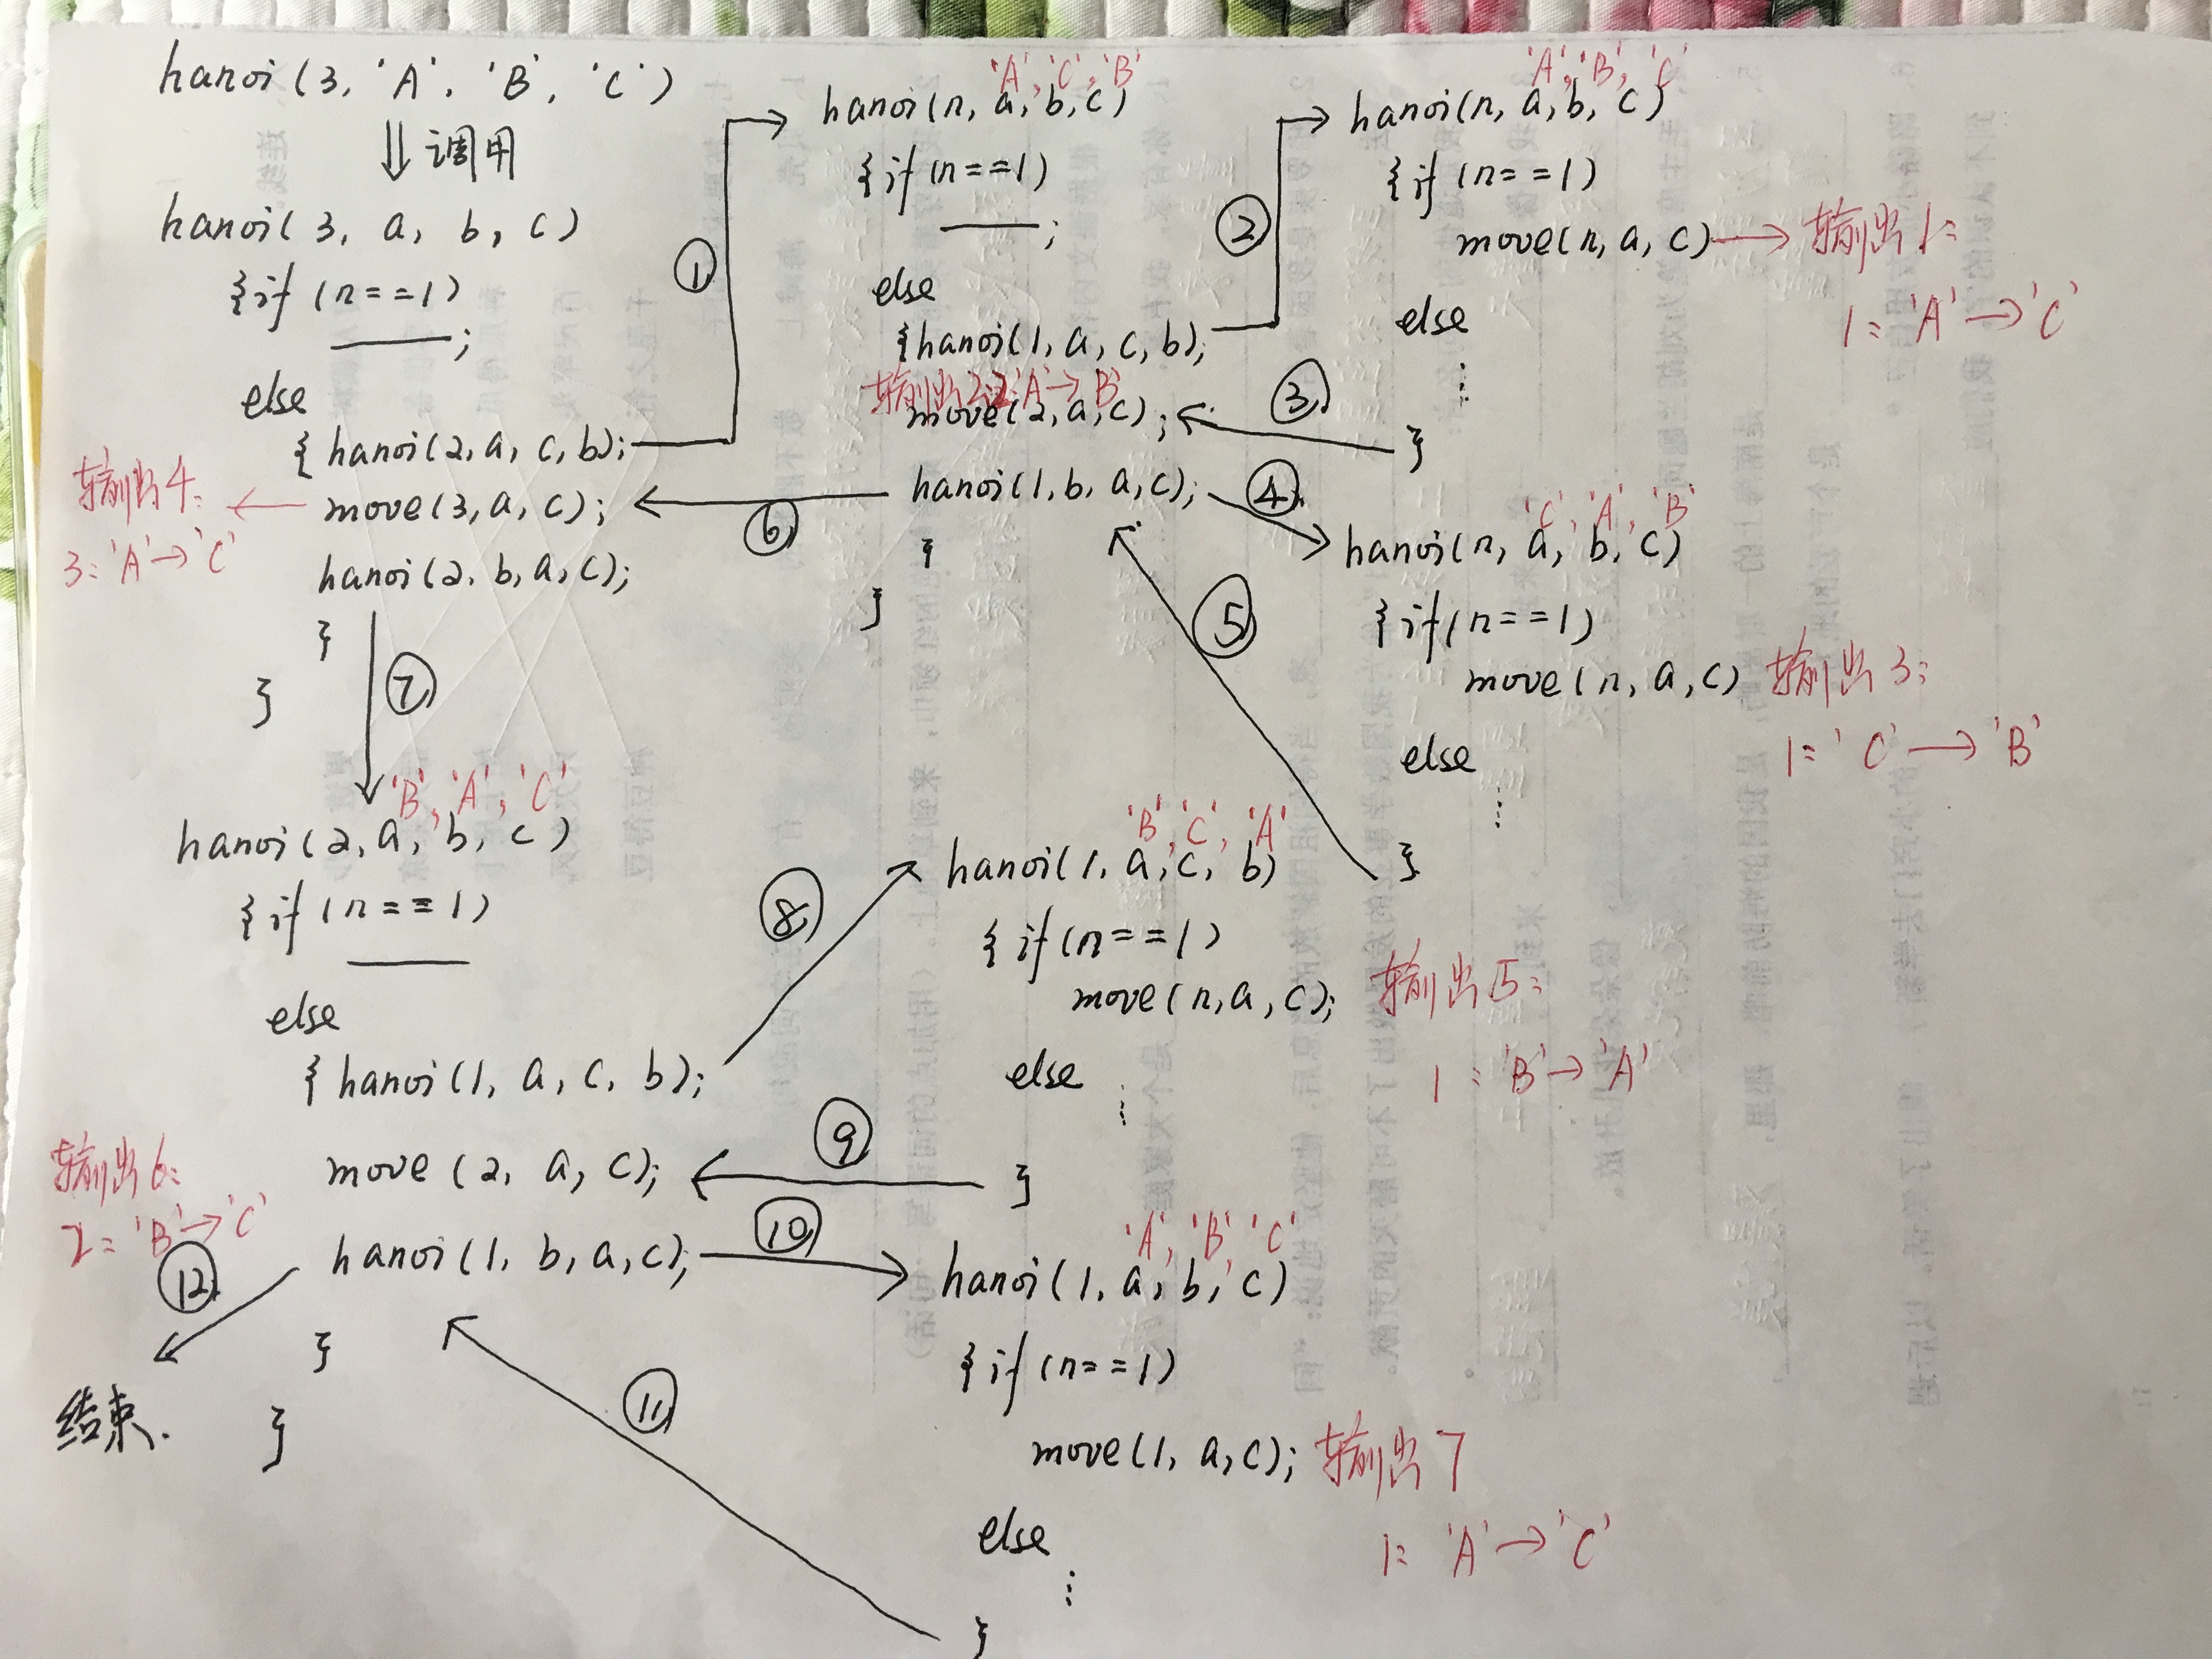 hanoi(3, 'A', 'B', 'C')
调用
hanoi(3, a, b, c)
{if (n==1)
——;
else
{hanoi(2,a,c,b);
输出4:
move(3,a,c);
3: 'A'→'C'
hanoi(2,b,a,c);
}
}
①
'A','C','B'
hanoi(n,a,b,c)
{if (n==1)
——;
else
{hanoi(1,a,c,b);
输出2:2:'A'→'B'
move(2,a,c);
hanoi(1,b,a,c);
}
}
②
'A','B','C'
hanoi(n,a,b,c)
{if (n==1)
move(n,a,c)→输出1:
1: 'A'→'C'
else
⋮
}
③
④
'C','A','B'
hanoi(n,a,b,c)
{if(n==1)
move(n,a,c) 输出3:
1: 'C'→'B'
else
⋮
}
⑤
⑥
⑦
'B','A','C'
hanoi(2,a,b,c)
{if (n==1)
——
else
{hanoi(1,a,c,b);
move(2,a,c);
输出6:
2: 'B'→'C'
hanoi(1,b,a,c);
}
}
⑧
'B','C','A'
hanoi(1,a,c,b)
{if(n==1)
move(n,a,c); 输出5:
1: 'B'→'A'
else
⋮
}
⑨
⑩
'A','B','C'
hanoi(1,a,b,c)
{if(n==1)
move(1,a,c); 输出7
1: 'A'→'C'
else
⋮
}
⑪
⑫
结束.